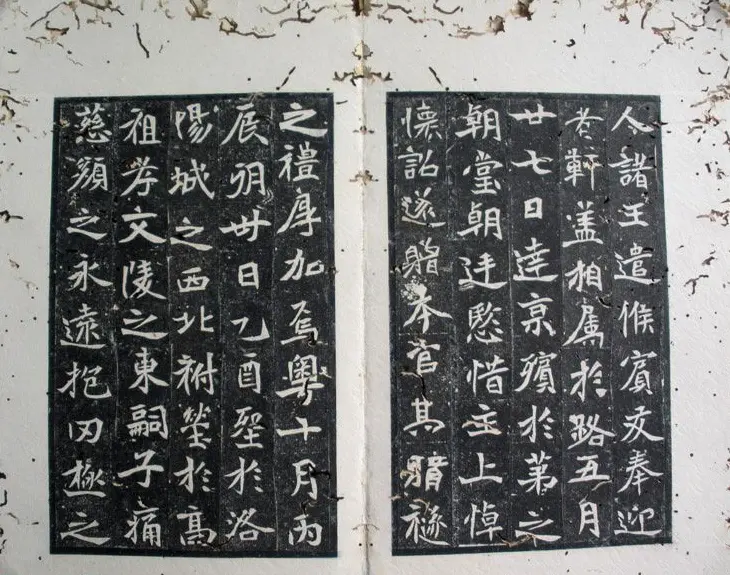 人諸王遣候賓友奉迎
者軒蓋相屬於路五月
廿七日達京殯於第之
朝堂朝廷愍惜主上悼
懷詔遂贈本官其賵襚
之禮厚加焉粵十月丙
辰朔卅日乙酉於洛
陽城之西北祔塋於高
祖孝文陵之東嗣子痛
慈顏之永遠抱罔極之